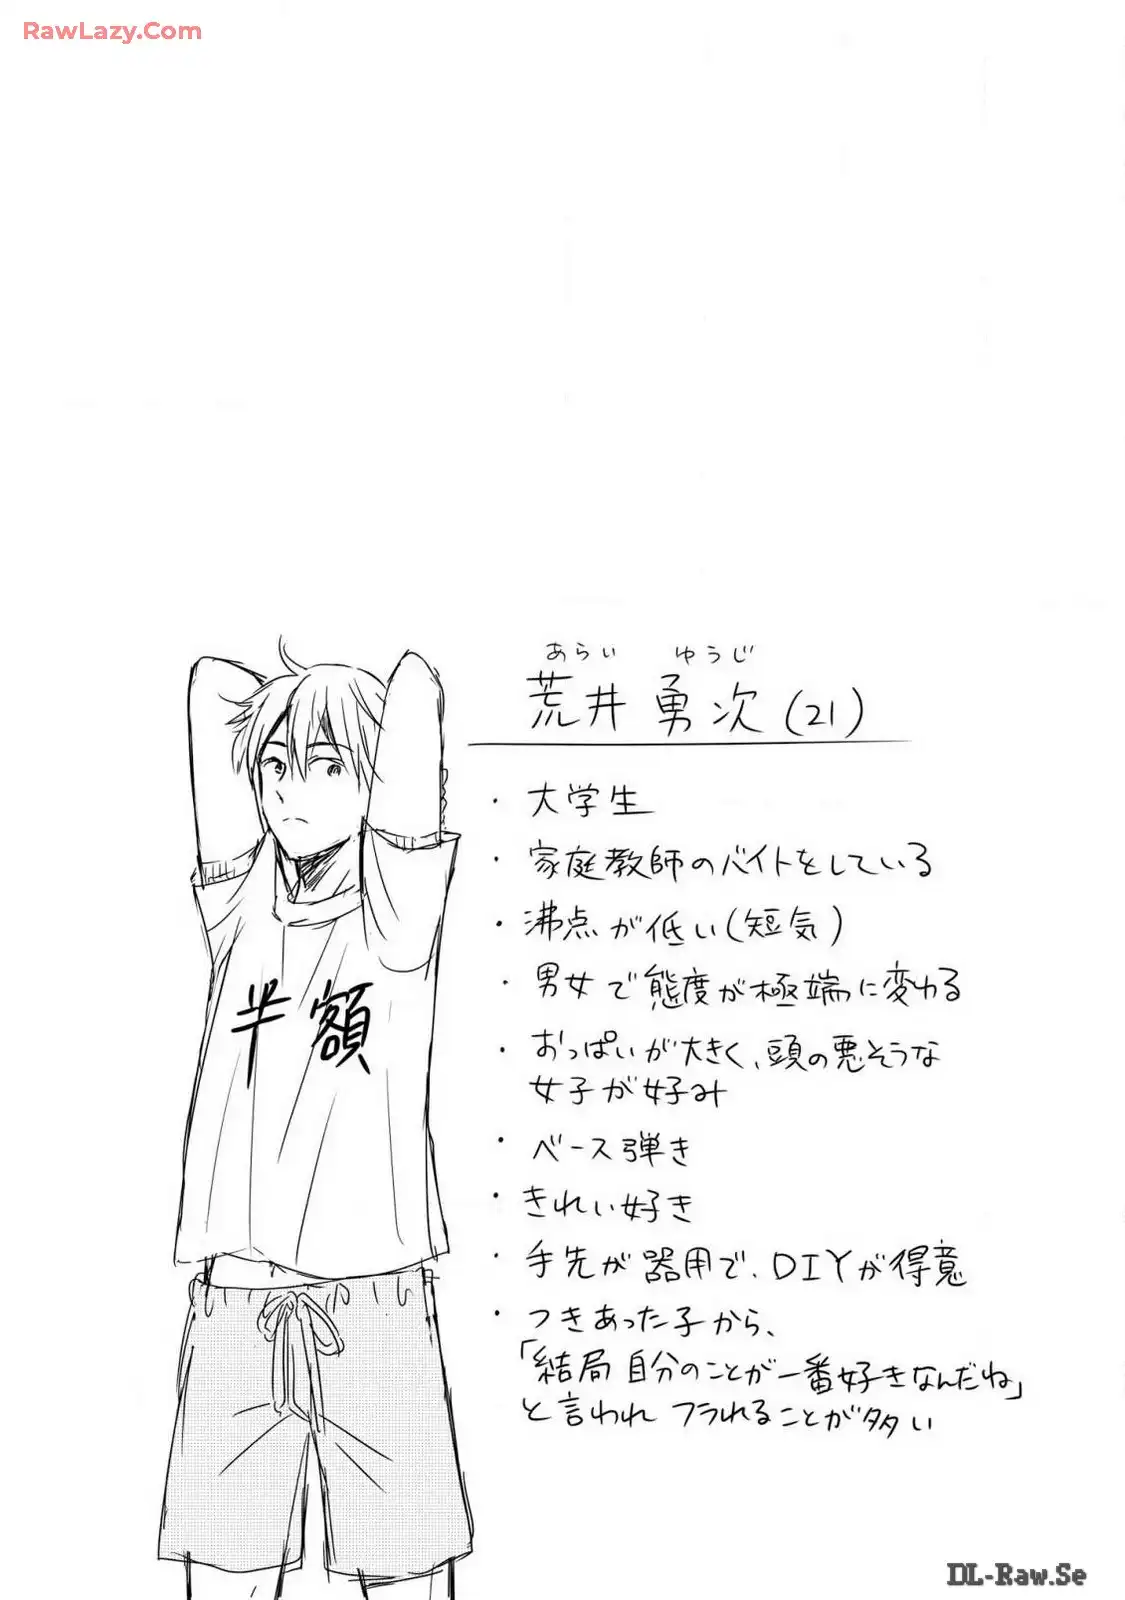 RawLazy.Com
あらい ゆうじ
荒井 勇次(21)
・大学生
・家庭教師のバイトをしている
・沸点が低い(短気)
・男女で態度が極端に変わる
・おっぱいが大きく、頭の悪そうな
女子が好み
・ベース弾き
・きれい好き
・手先が器用で、DIYが得意
・つきあった子から、
「結局自分のことが一番好きなんだね」
と言われフラれることが多い
半額
DL-Raw.Se